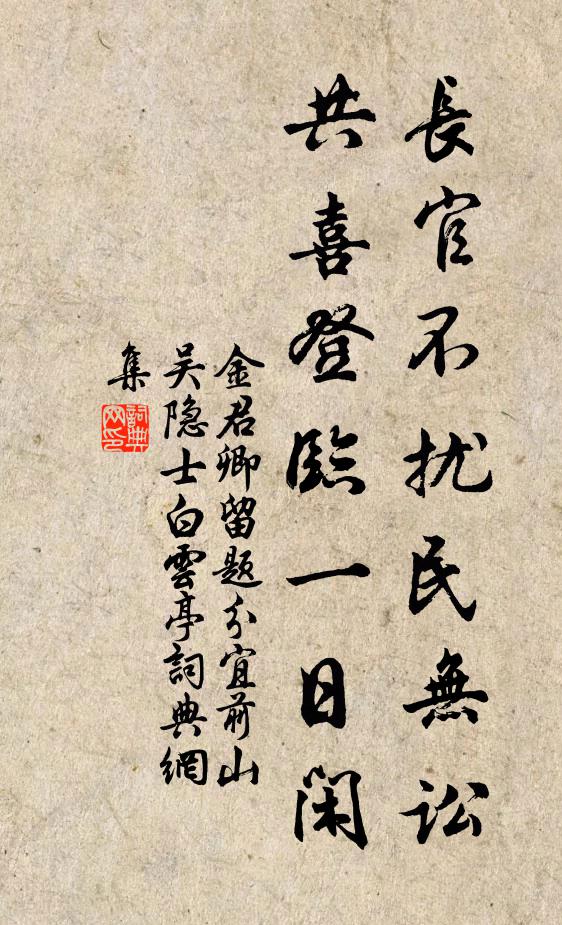 長官不扰民無訟
共喜登臨一日閑
金君卿留題分宜前山
吴隐士白雲亭詞典網
集
詞典
网印